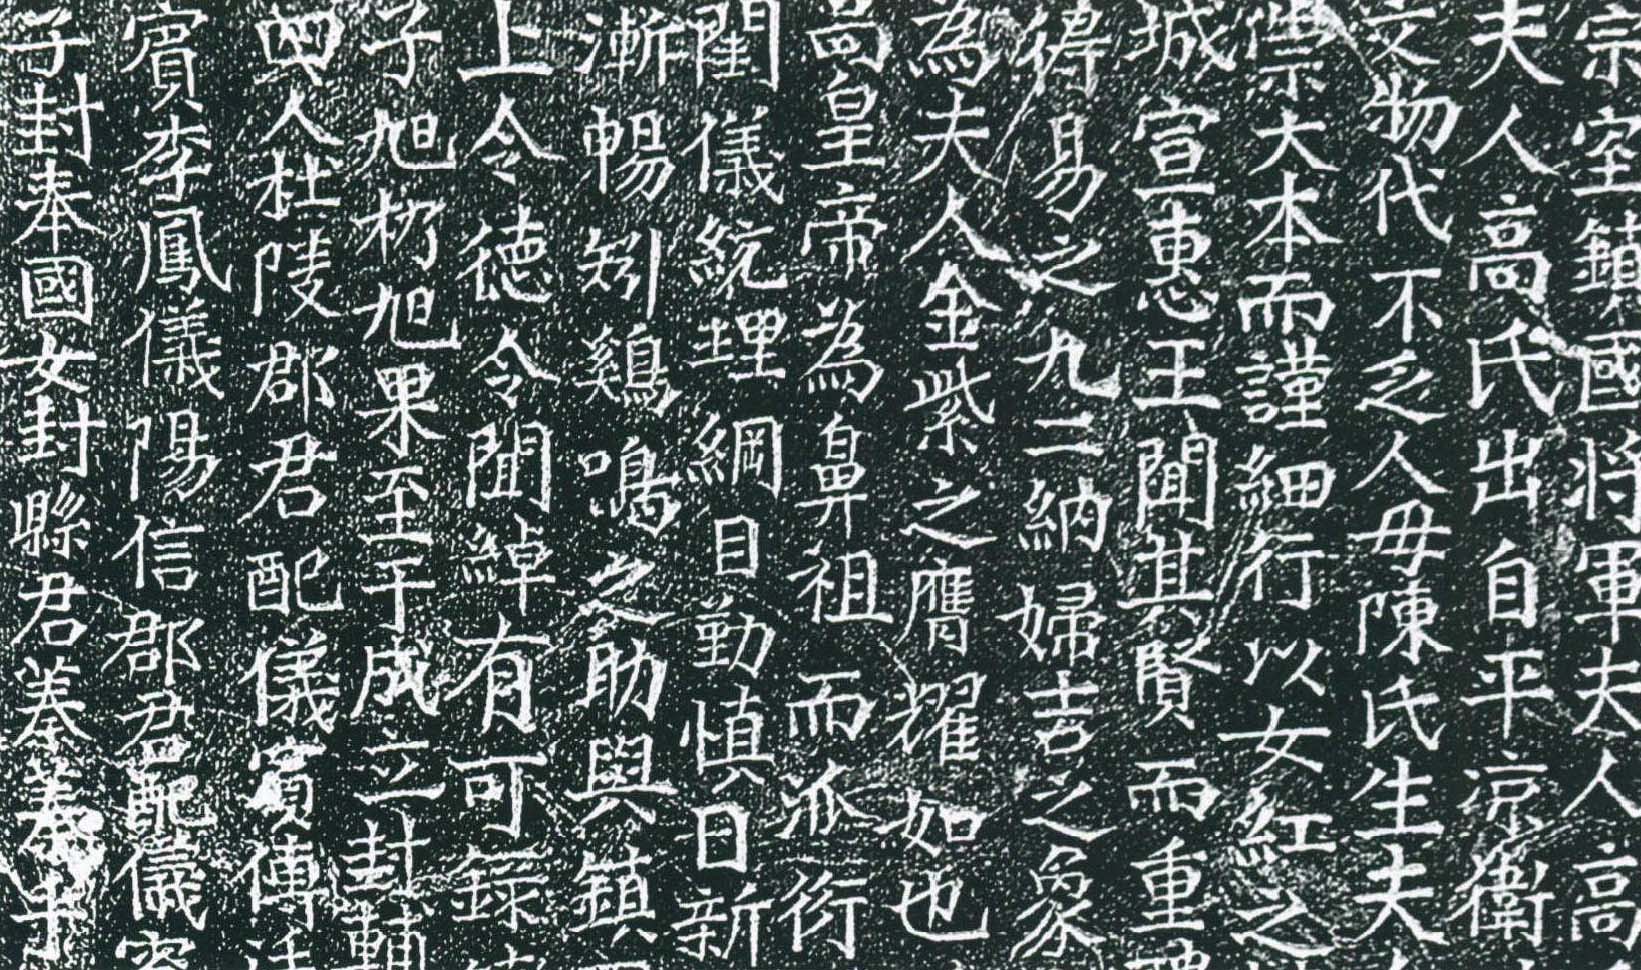 宗室鎮國将軍夫人高
夫人高氏出自平凉衛
文物代不乏人毋陳氏生夫
崇大本而謹細行以女紅之
城宣惠王聞其賢而重
得易之九二納婦吉之象
為夫人金紫之膺耀如也
高皇帝為鼻祖而派衍
閨儀統理綱目勤慎日新
漸暢刿鷄鳴之助與鎮
上令德令聞綽有可録
子旭杤旭果至于成立封輔
四人杜陵郡君配儀賓傅
賓李鳳儀陽信郡君配儀賓
子封奉國女封縣君